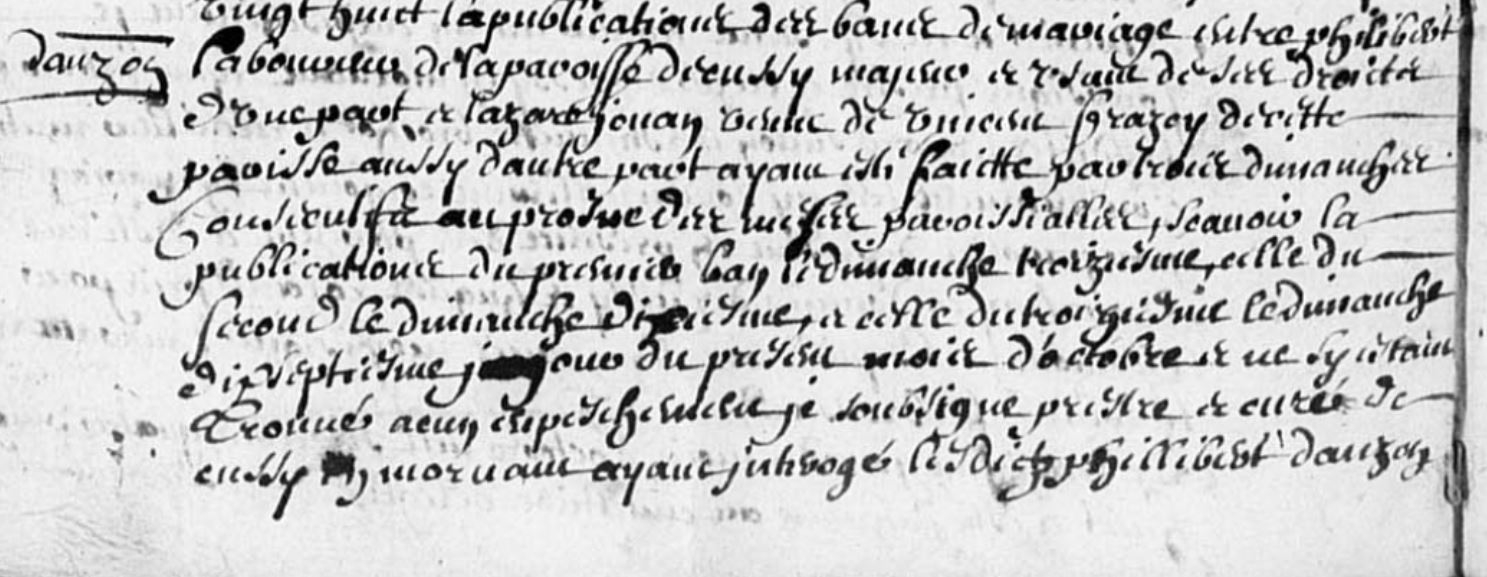 vingt huict la publications des bans de mariage entre philibert
dauzon laboureur de la paroisse de cussy majeur et usant de ses droicts
d'une part et lazare jouan veuve de vivien frazey de cette
paroisse aussy d'autre part ayant esté faicte par trois dimanches
consecutifs au prosne des messes paroissialles, scavoir la
publications du premier ban le dimanche troizieme, celle du
second le dimanche dixiesme, et celle du troizieme le dimanche
dixseptiesme jour du present mois d'octobre et ne s'y estant
trouvé aucun empeschement je soubsigne prestre et curé de
cussy en morvant ayant introgé lesdicts phillibert dauzon